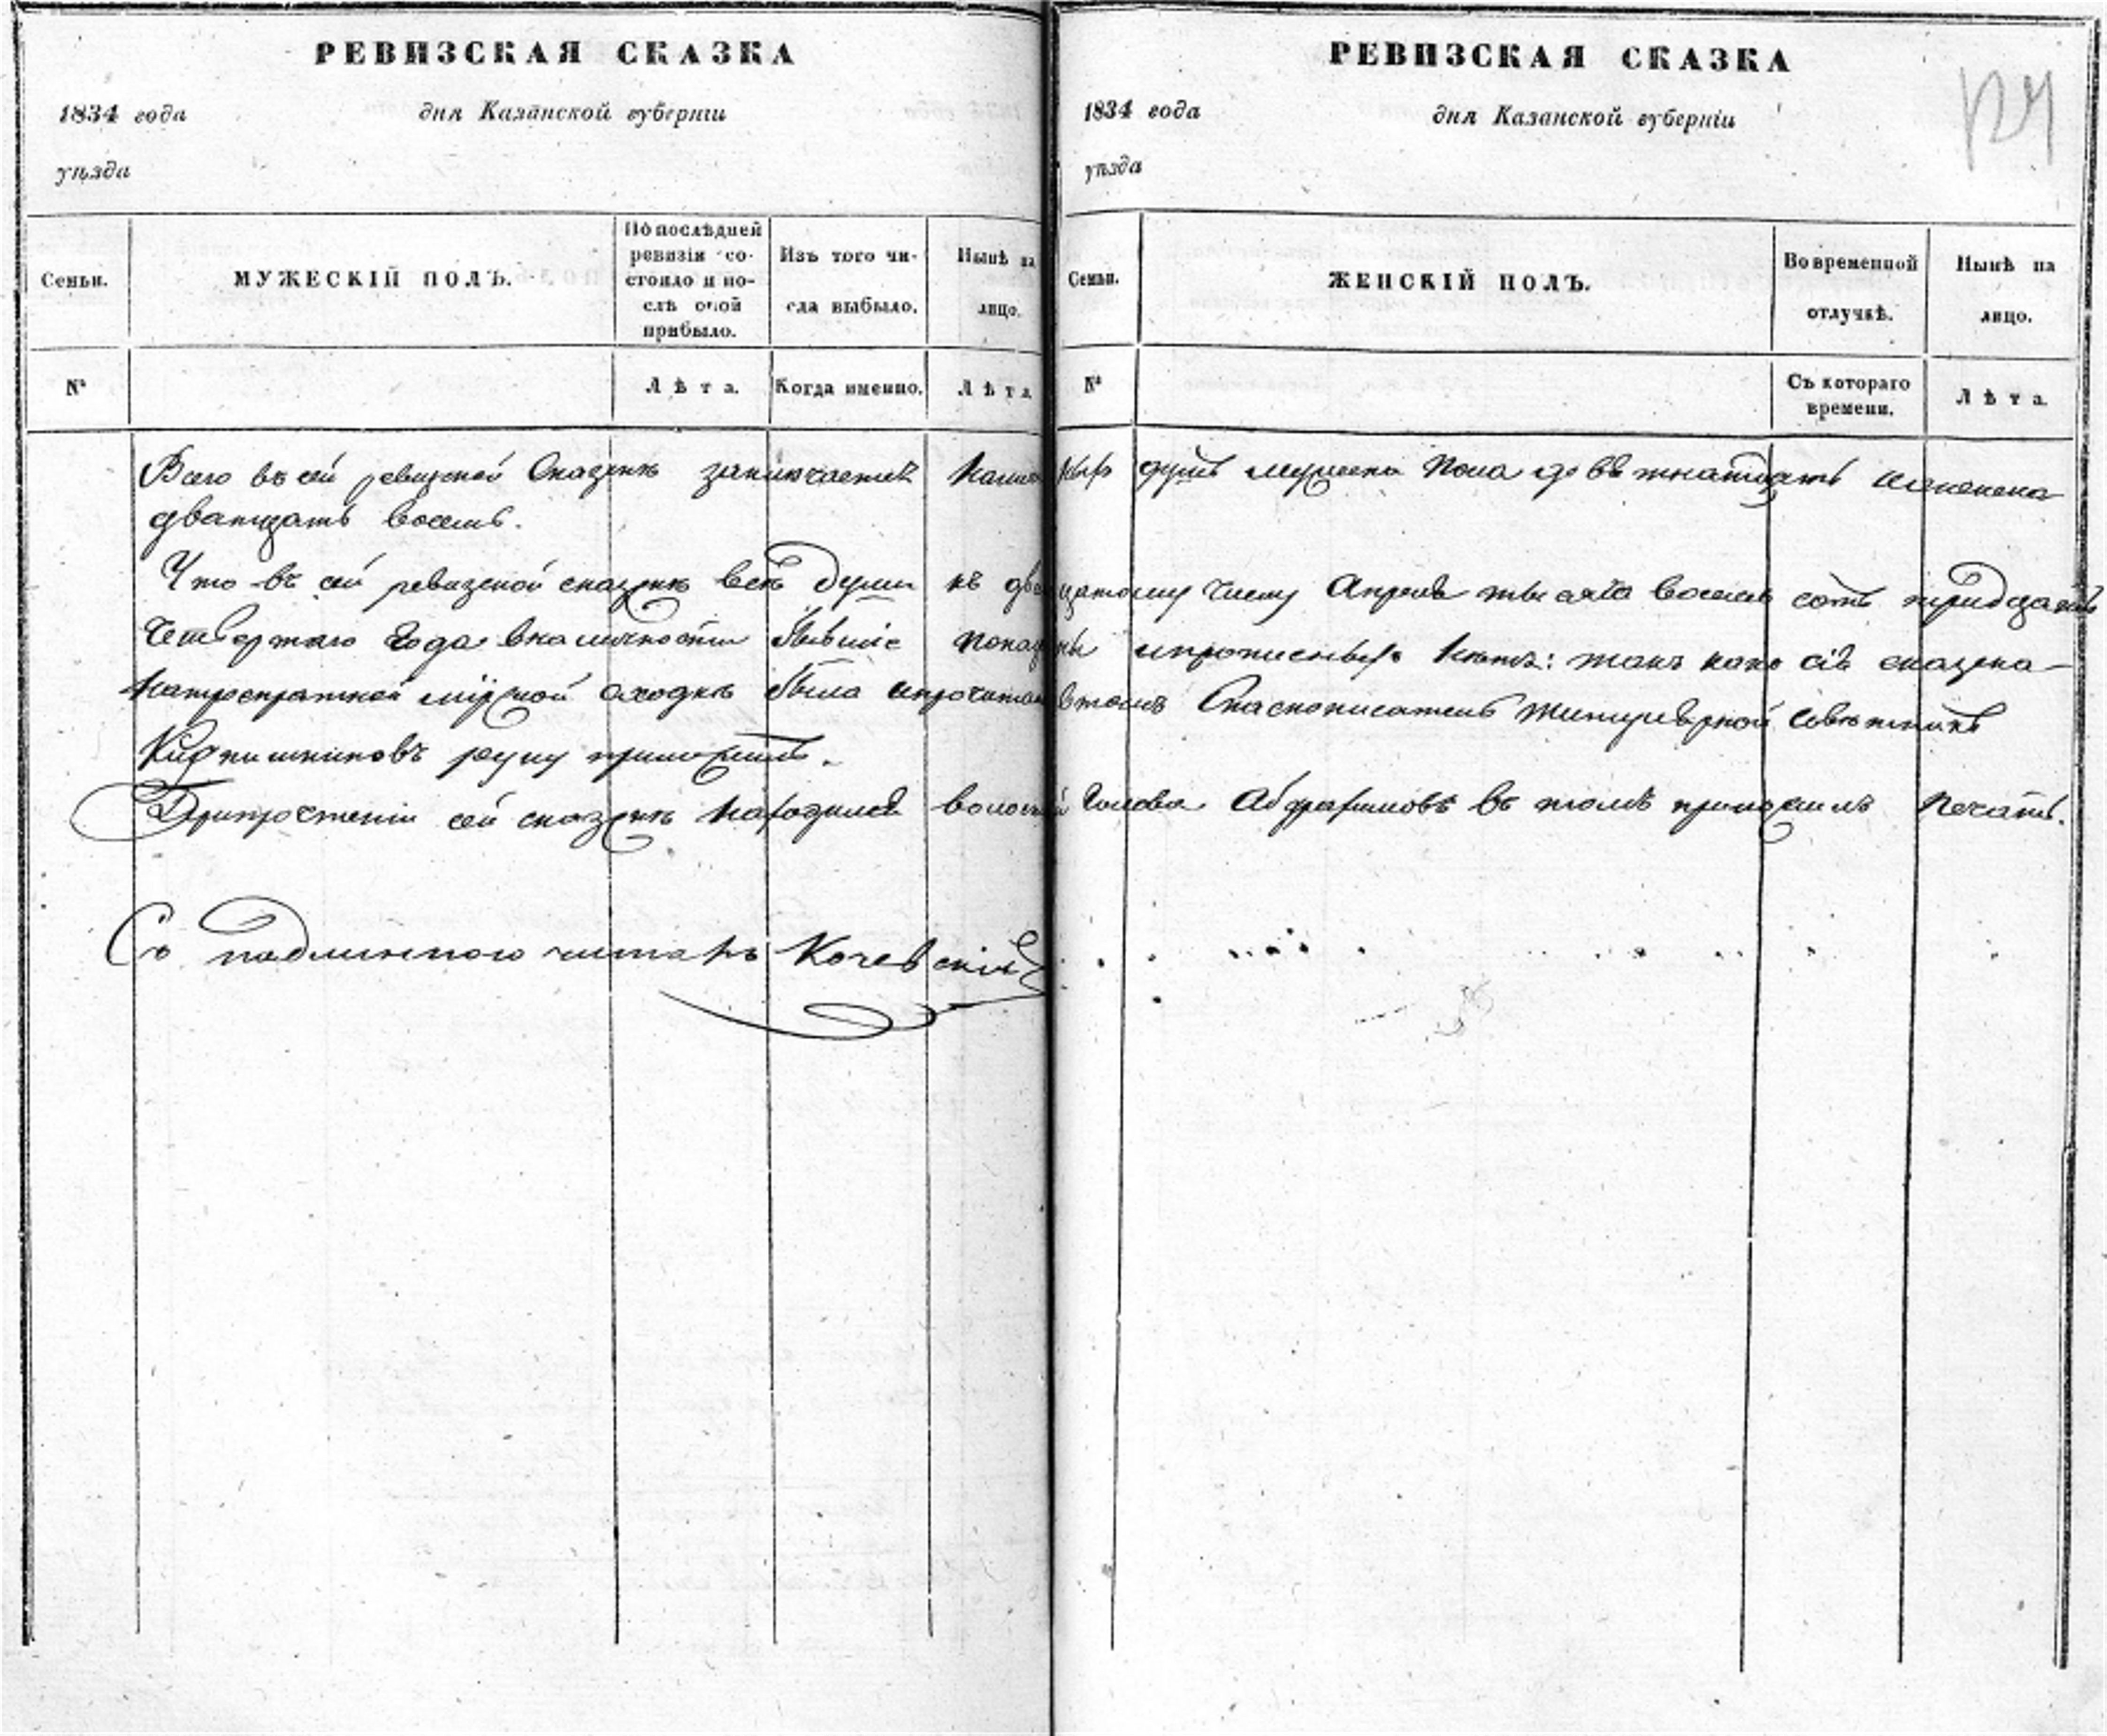 РЕВИЗСКАЯ СКАЗКА
1834 года дня Казанской губерніи
уѣзда
Семьи.
МУЖЕСКІЙ ПОЛЪ.
По послѣдней
ревизіи со-
стояло и по-
слѣ оной
прибыло.
Изъ того чи-
сла выбыло.
Нынѣ на
лицо.
№
Лѣта.
Когда именно.
Лѣта
РЕВИЗСКАЯ СКАЗКА
1834 года дня Казанской губерніи
уѣзда
Семьи.
ЖЕНСКІЙ ПОЛЪ.
Во временной
отлучкѣ.
Нынѣ на
лицо.
№
Съ котораго
времени.
Лѣта.
Всего въ сей ревизской Сказкѣ заключается душъ мужеска Пола
дватцать восемь.
Что въ сей ревизской сказкѣ всѣ души къ двацатому числу Апреля тысяча восемь сотъ тридцать
Четвертаго Года вналичности бывшіе нѣтъ: такъ какъ сія сказка
мірской сходкѣ была втомъ Титулярной совѣтникъ
руку приложилъ.
сей сказки находился волостной Голова въ томъ приложилъ Печать.
Съ подлинного читалъ Кочевскій